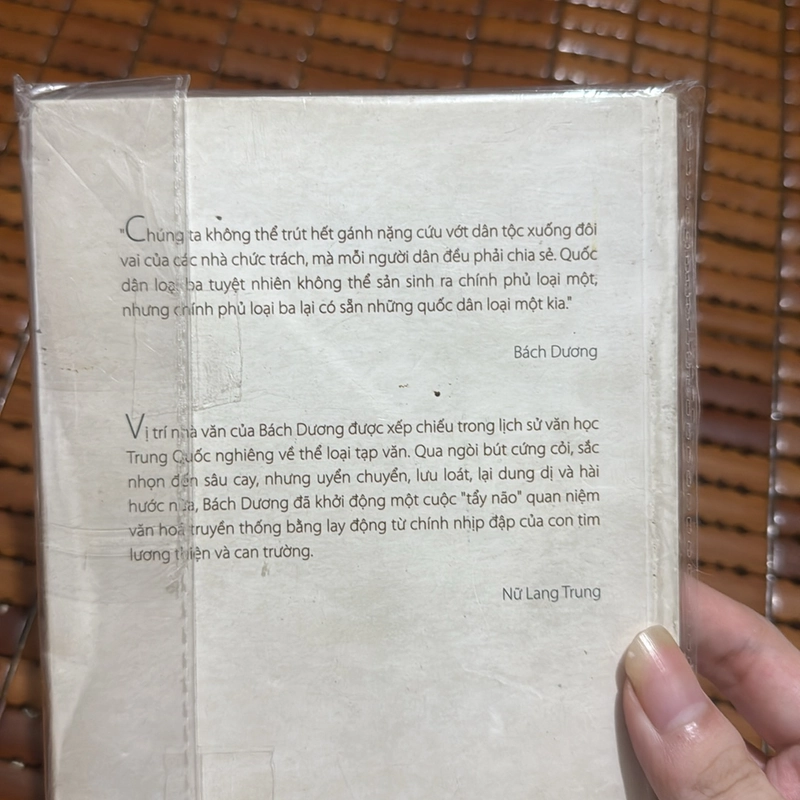 "Chúng ta không thể trút hết gánh nặng cứu vớt dân tộc xuống đôi
vai của các nhà chức trách, mà mỗi người dân đều phải chia sẻ. Quốc
dân loại ba tuyệt nhiên không thể sản sinh ra chính phủ loại một,
nhưng chính phủ loại ba lại có sẵn những quốc dân loại một kia."
Bách Dương
Vị trí nhà văn của Bách Dương được xếp chiếu trong lịch sử văn học
Trung Quốc nghiêng về thể loại tạp văn. Qua ngòi bút cứng cỏi, sắc
nhọn đến sâu cay, nhưng uyển chuyển, lưu loát, lại dung dị và hài
hước nữa, Bách Dương đã khởi động một cuộc "tẩy não" quan niệm
văn hoá truyền thống bằng lay động từ chính nhịp đập của con tim
lương thiện và can trường.
Nữ Lang Trung